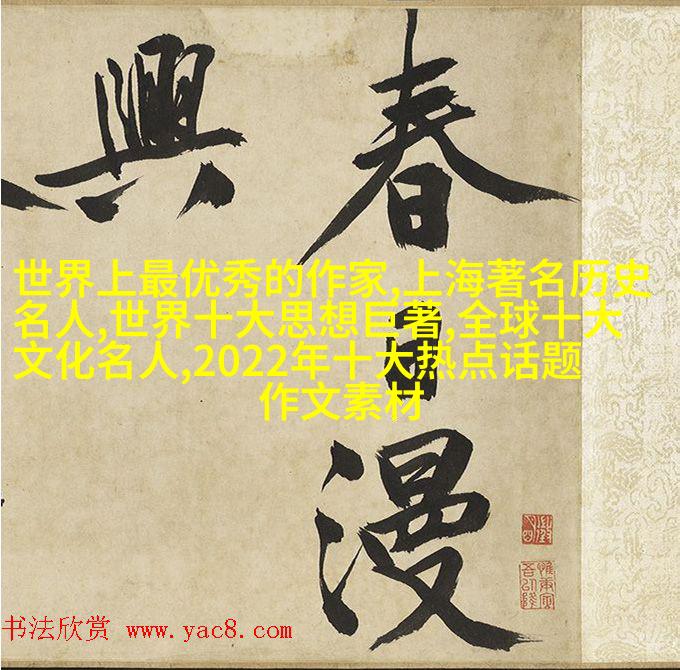 春日漫
興
世界上最优秀的作家,上海著名历史
名人,世界十大思想巨著,全球十大
文化名人,2022年十大热点话题
作文素材
书法欣赏 www.yac8.com